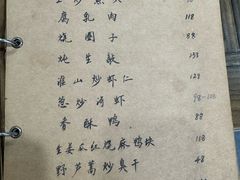 腐乳肉 118
烧圈子 88
炖生敲 153
淮山炒虾仁 129
葱炒河虾 98-108
香酥鸭 88
生姜瓜红烧麻鸭块 118
野芦蒿炒臭干 48